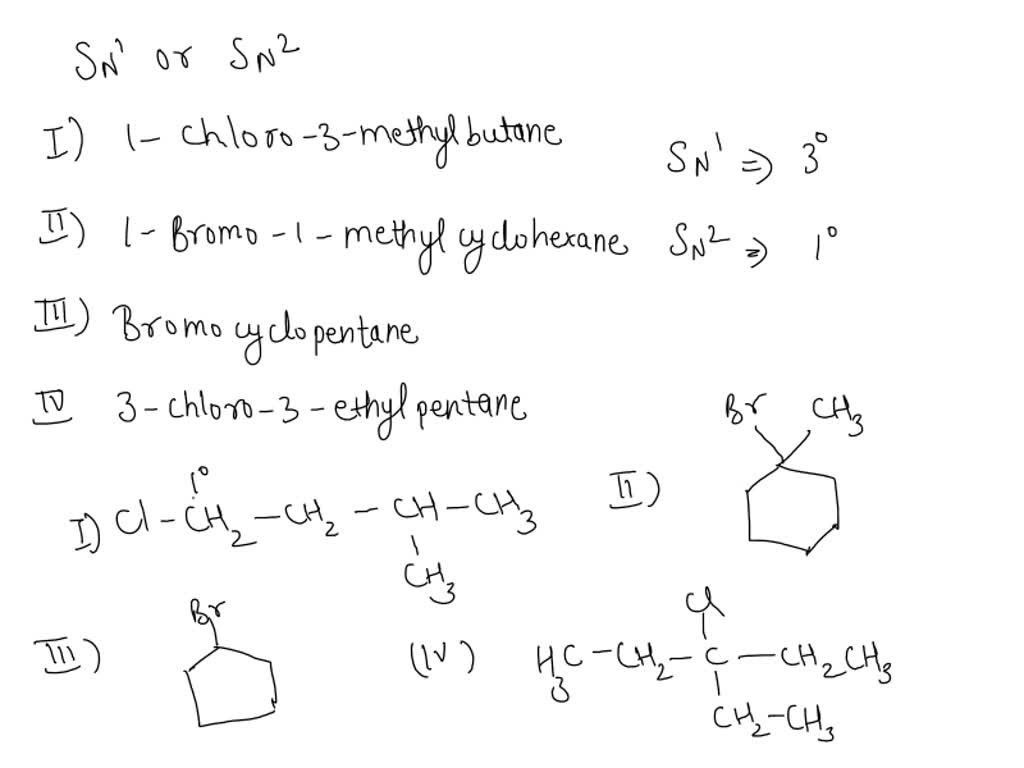 SN1 or SN2
I) 1- chloro-3-methylbutane
SN1 ⇒ 3°
II) 1- Bromo-1-methylcyclohexane
SN2 ⇒ 1°
III) Bromocyclopentane
IV 3-chloro-3-ethylpentane
1°
I) Cl-CH2-CH2-CH-CH3
CH3
II) Br CH3
III) Br
(IV) Cl
H3C-CH2-C-CH2CH3
CH2-CH3